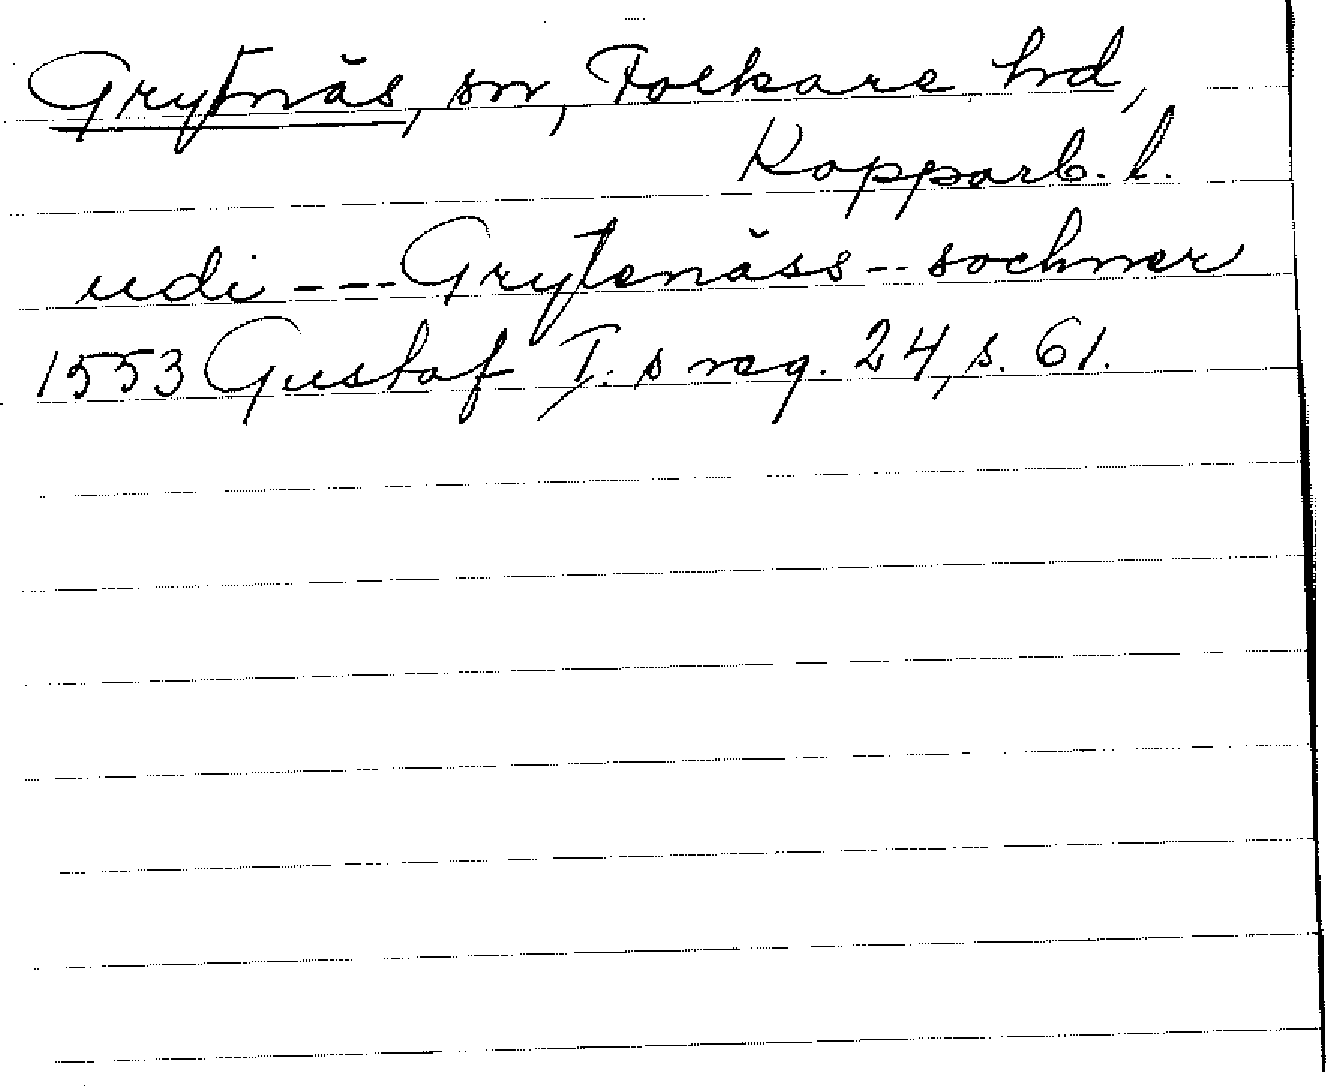 Grytnäs, sn, Folkare hd,
Kopparb. l.
udi --- Grytenäss -- sochner
1553 Gustaf I:s reg. 24, s. 61.